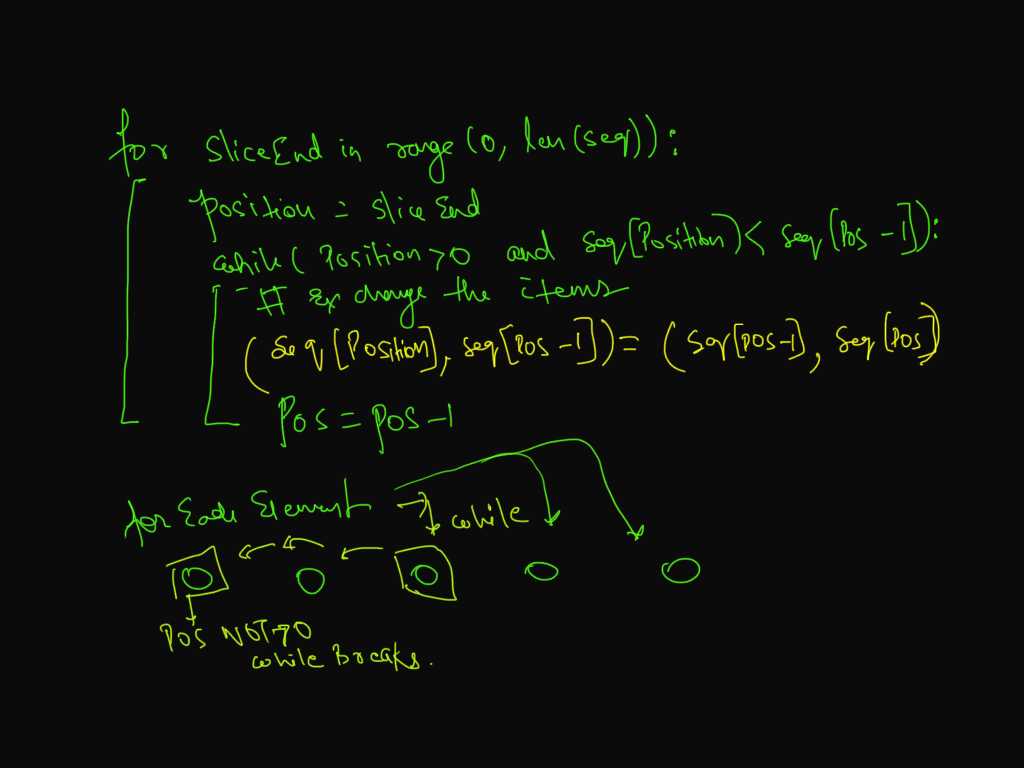 for SliceEnd in range (0, len(seq)):
position = slice End
while ( Position > 0 and seq[Position] < seq[Pos -1]):
# Exchange the items
(seq [Position], seq[Pos -1]) = (seq[pos-1], seq[pos])
Pos = pos -1
for Each Element → while
Pos NOT > 0
while Breaks.